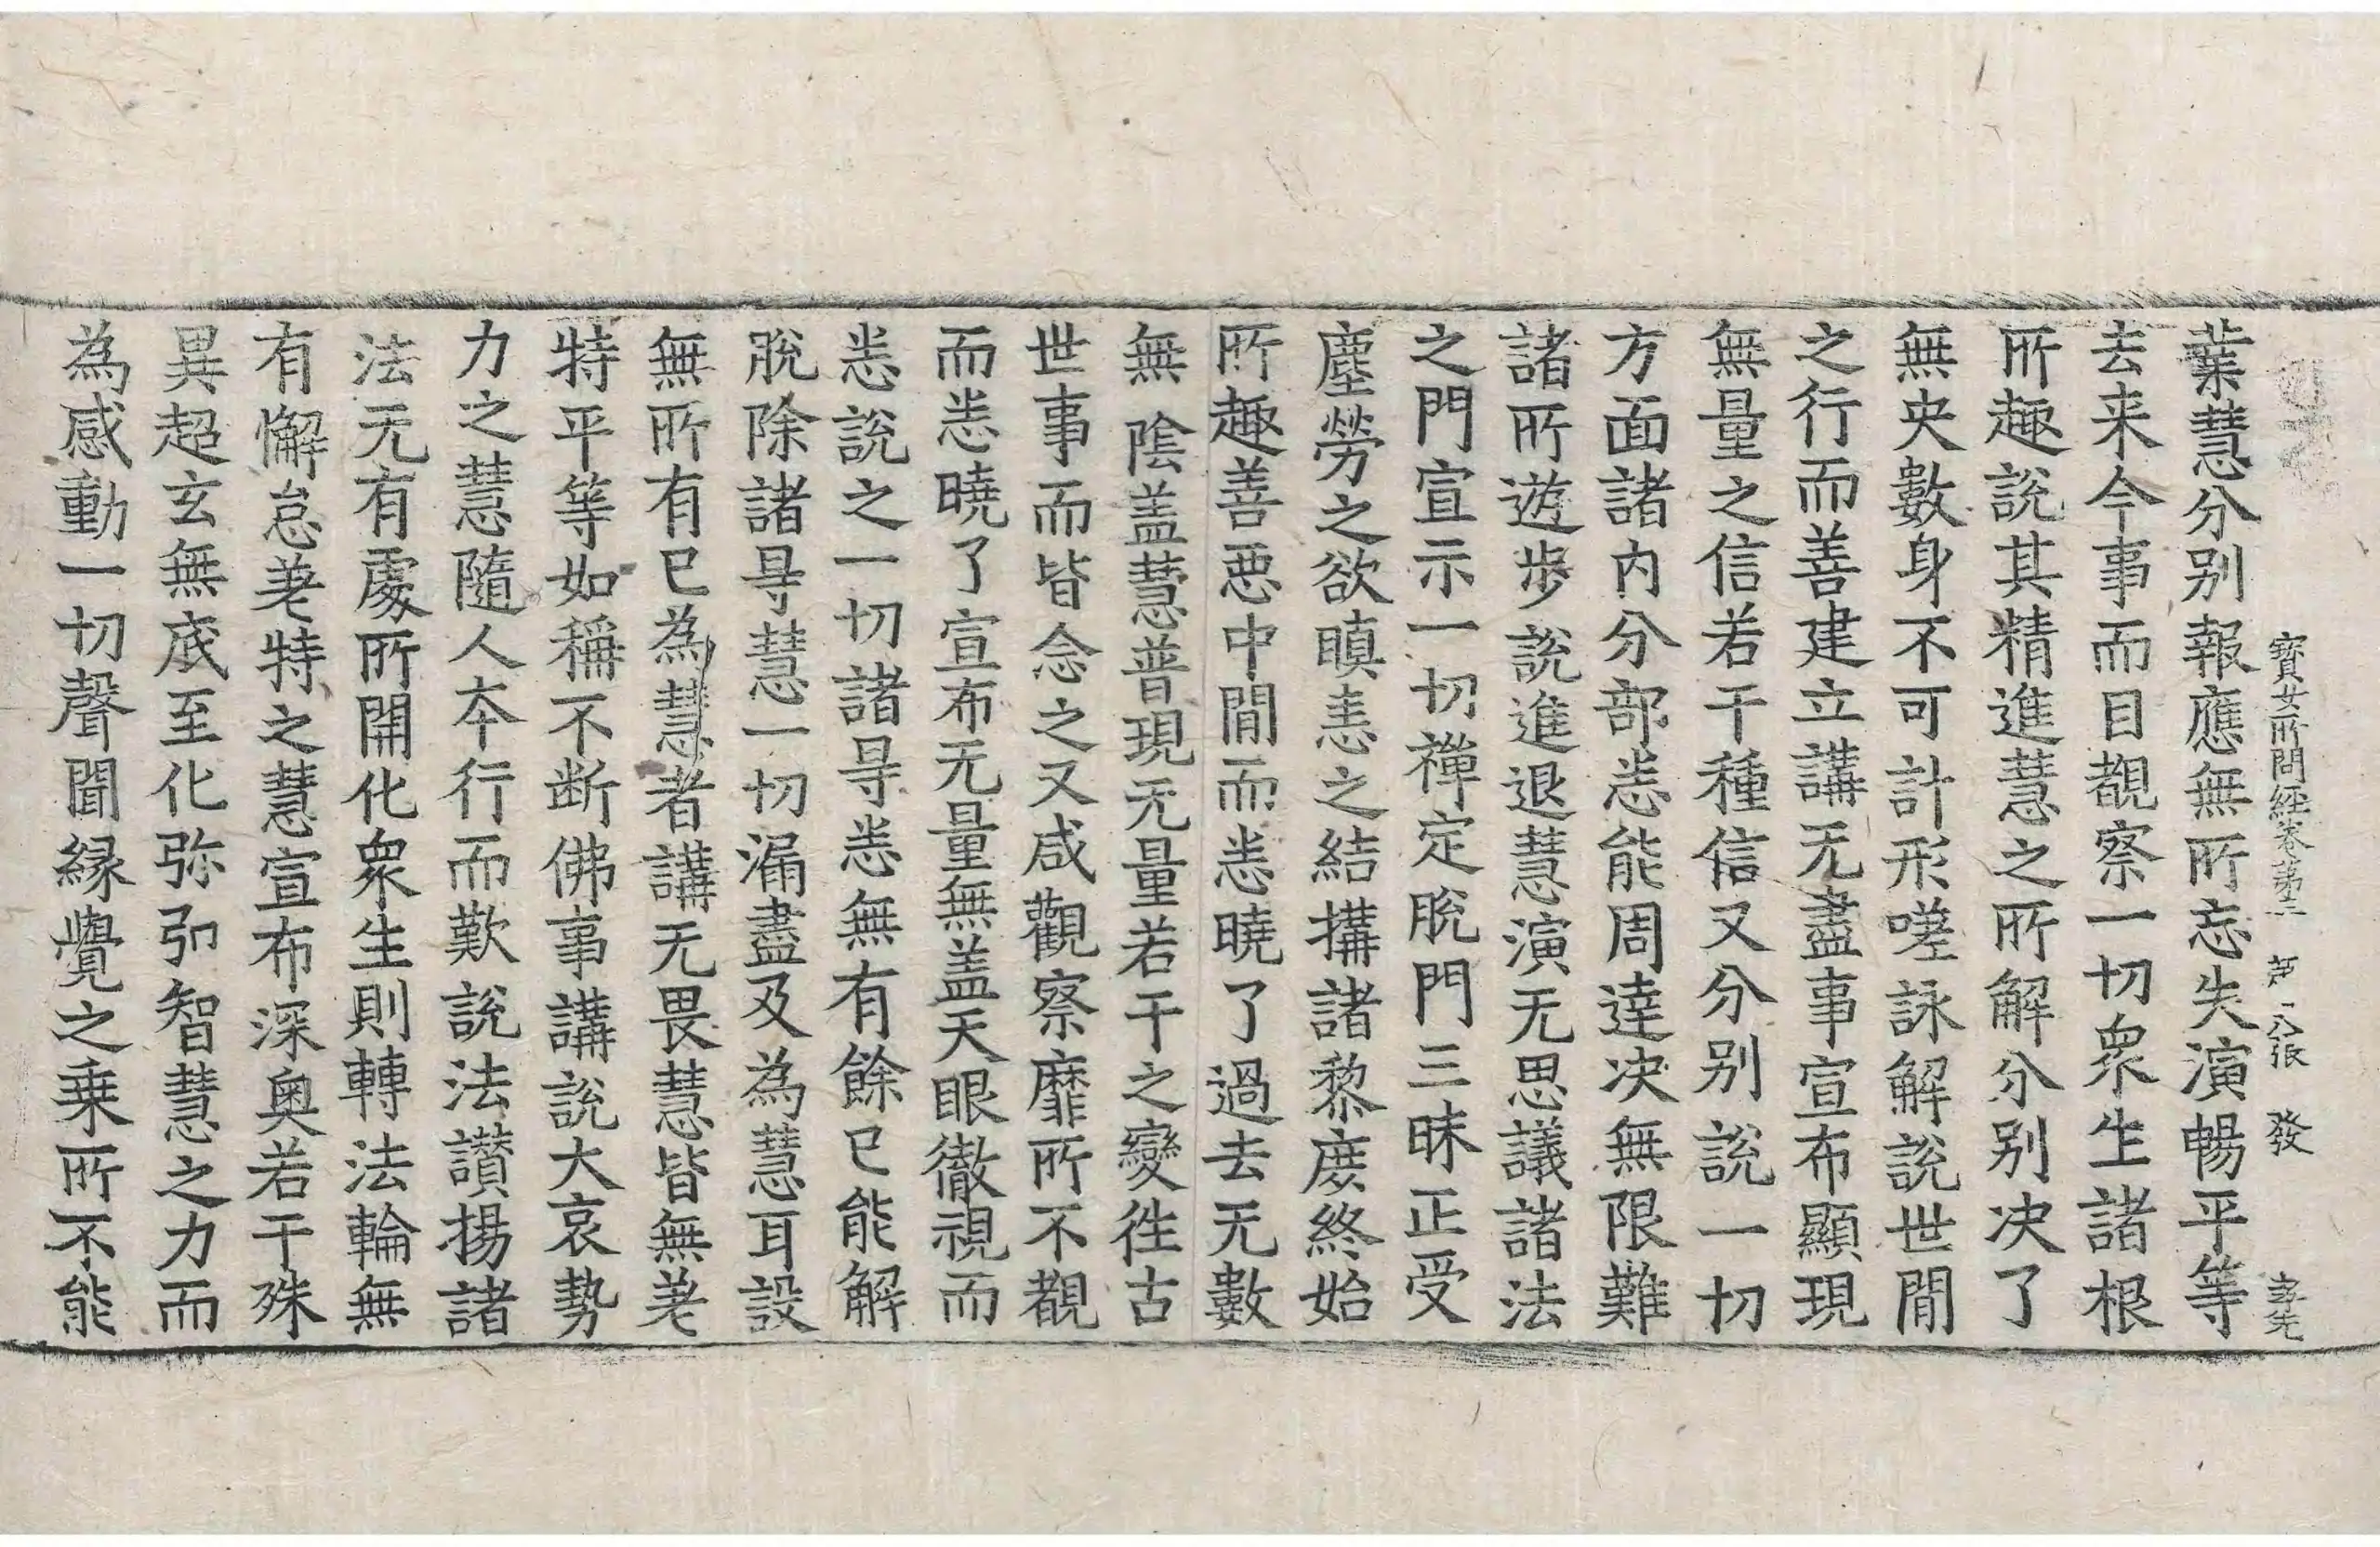 寳女所問經卷苐二 苐十八張 發
葉慧分别報應無所忘失演暢平等
去来今事而目覩察一切衆生諸根
所趣說其精進慧之所解分别决了
無央數身不可計形嗟詠解說世閒
之行而善建立講无盡事宣布顯現
無量之信若干種信又分别說一切
方面諸内分部悉能周達决無限難
諸所遊步說進退慧演无思議諸法
之門宣示一切禪定脫門三昧正受
塵勞之欲瞋恚之結搆諸黎庻終始
所趣善惡中閒而悉曉了過去无數
無陰盖慧普現无量若干之變徃古
世事而皆念之又咸觀察靡所不覩
而悉曉了宣布无量無盖天眼徹視而
悉說之一切諸㝵悉無有餘已能解
脫除諸㝵慧一切漏盡及為慧耳設
無所有已為慧者講无畏慧皆無䓁
特平等如稱不断佛事講說大哀勢
力之慧隨人夲行而歎說法讃揚諸
法无有處所開化衆生則轉法輪無
有懈怠䓁特之慧宣布深奥若干殊
異超玄無底至化弥弘智慧之力而
為感動一切聲聞緣覺之乗所不能